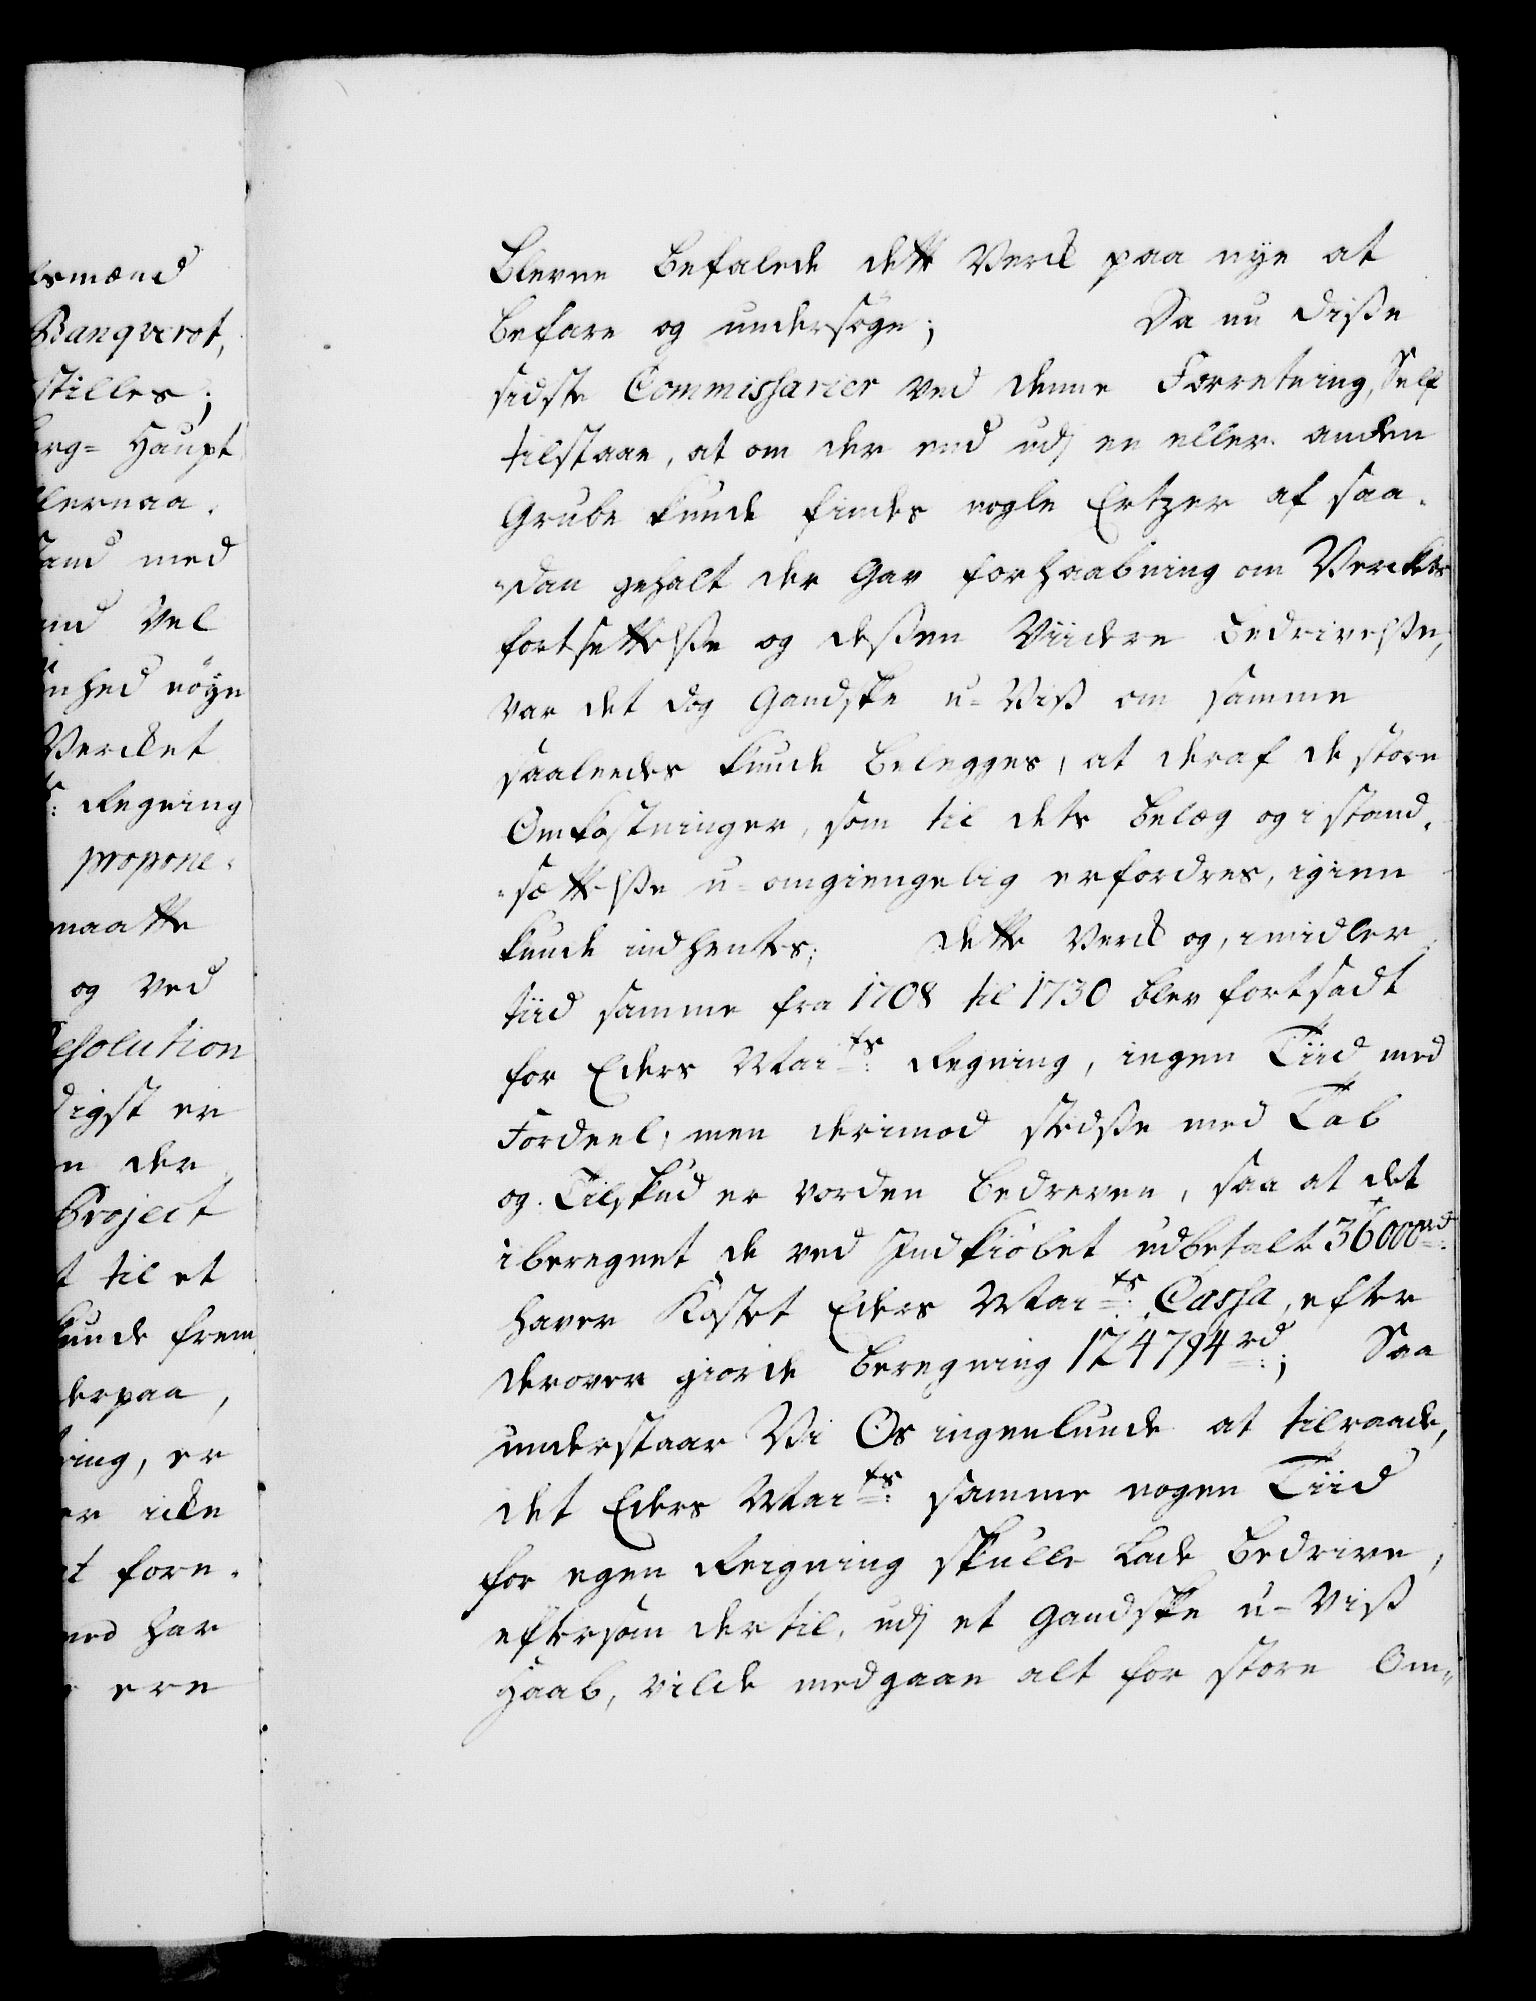 esmænd
Banqverot,
stilles;
erg= Haupt
lernaa.
and med
ind Vel
inhed nöye
Vercket
Regning
propone.
maatte
og ved
esolution
digst er
n der
Project
t til et
kunde frem
derpaa,
ring, er
er icke
et fore.
med har
ere
bleven befalede dette Verck paa nye at
befare og undersöge; Da nu diße
sidste Commissarier ved denne Forretning, Self
tilstaae, at om der end udj en eller anden
Grube kunde findes nogle Ertzer af saa-
dan gehalt der Gav forhaabning om Verckets
fortsettelße og deßen Viidere bedrivelße,
var det dog Gandske u-Viß om samme
saaleedes kunde belegges, at deraf de store
Omkostninger, som til dets belæg og i stand-
-sættelße u-omgiengelig erfordres, igien
kunde indhentes; dette Verck og, imidler
tiid samme fra 1708 til 1730 blev fortsadt
for Eders Mai:ts Regning, ingen Tiid med
Fordeel, men derimod stedße med Tab
og Tilskud er vorden bedreven, saa at det
iberegnet de ved Indkiöbet udbetalte 36000rd:
haver Kostet Eders Mai:ts Cassa, efter
derover giorde beregning 124794rd:; Saa
understaar Vi Os ingenlunde at tilraade,
det Eders Mai:ts samme nogen Tiid
for egen Reigning skulle lade bedrive,
eftersom dertil, udj et gandske u-Viß
Haab, vilde medgaae alt for store Om-